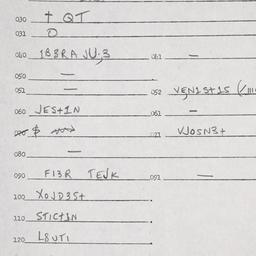 030 † QT
031 O
040 188RA JU;3 041 —
050 —
051 — 052 VENISTIS
060 JEST1N 061 —
$
021 VJOSN3t
080 —
090 F13R TEJK 091 —
100 XOJD3St
110 STICTIN
120 L8UTI